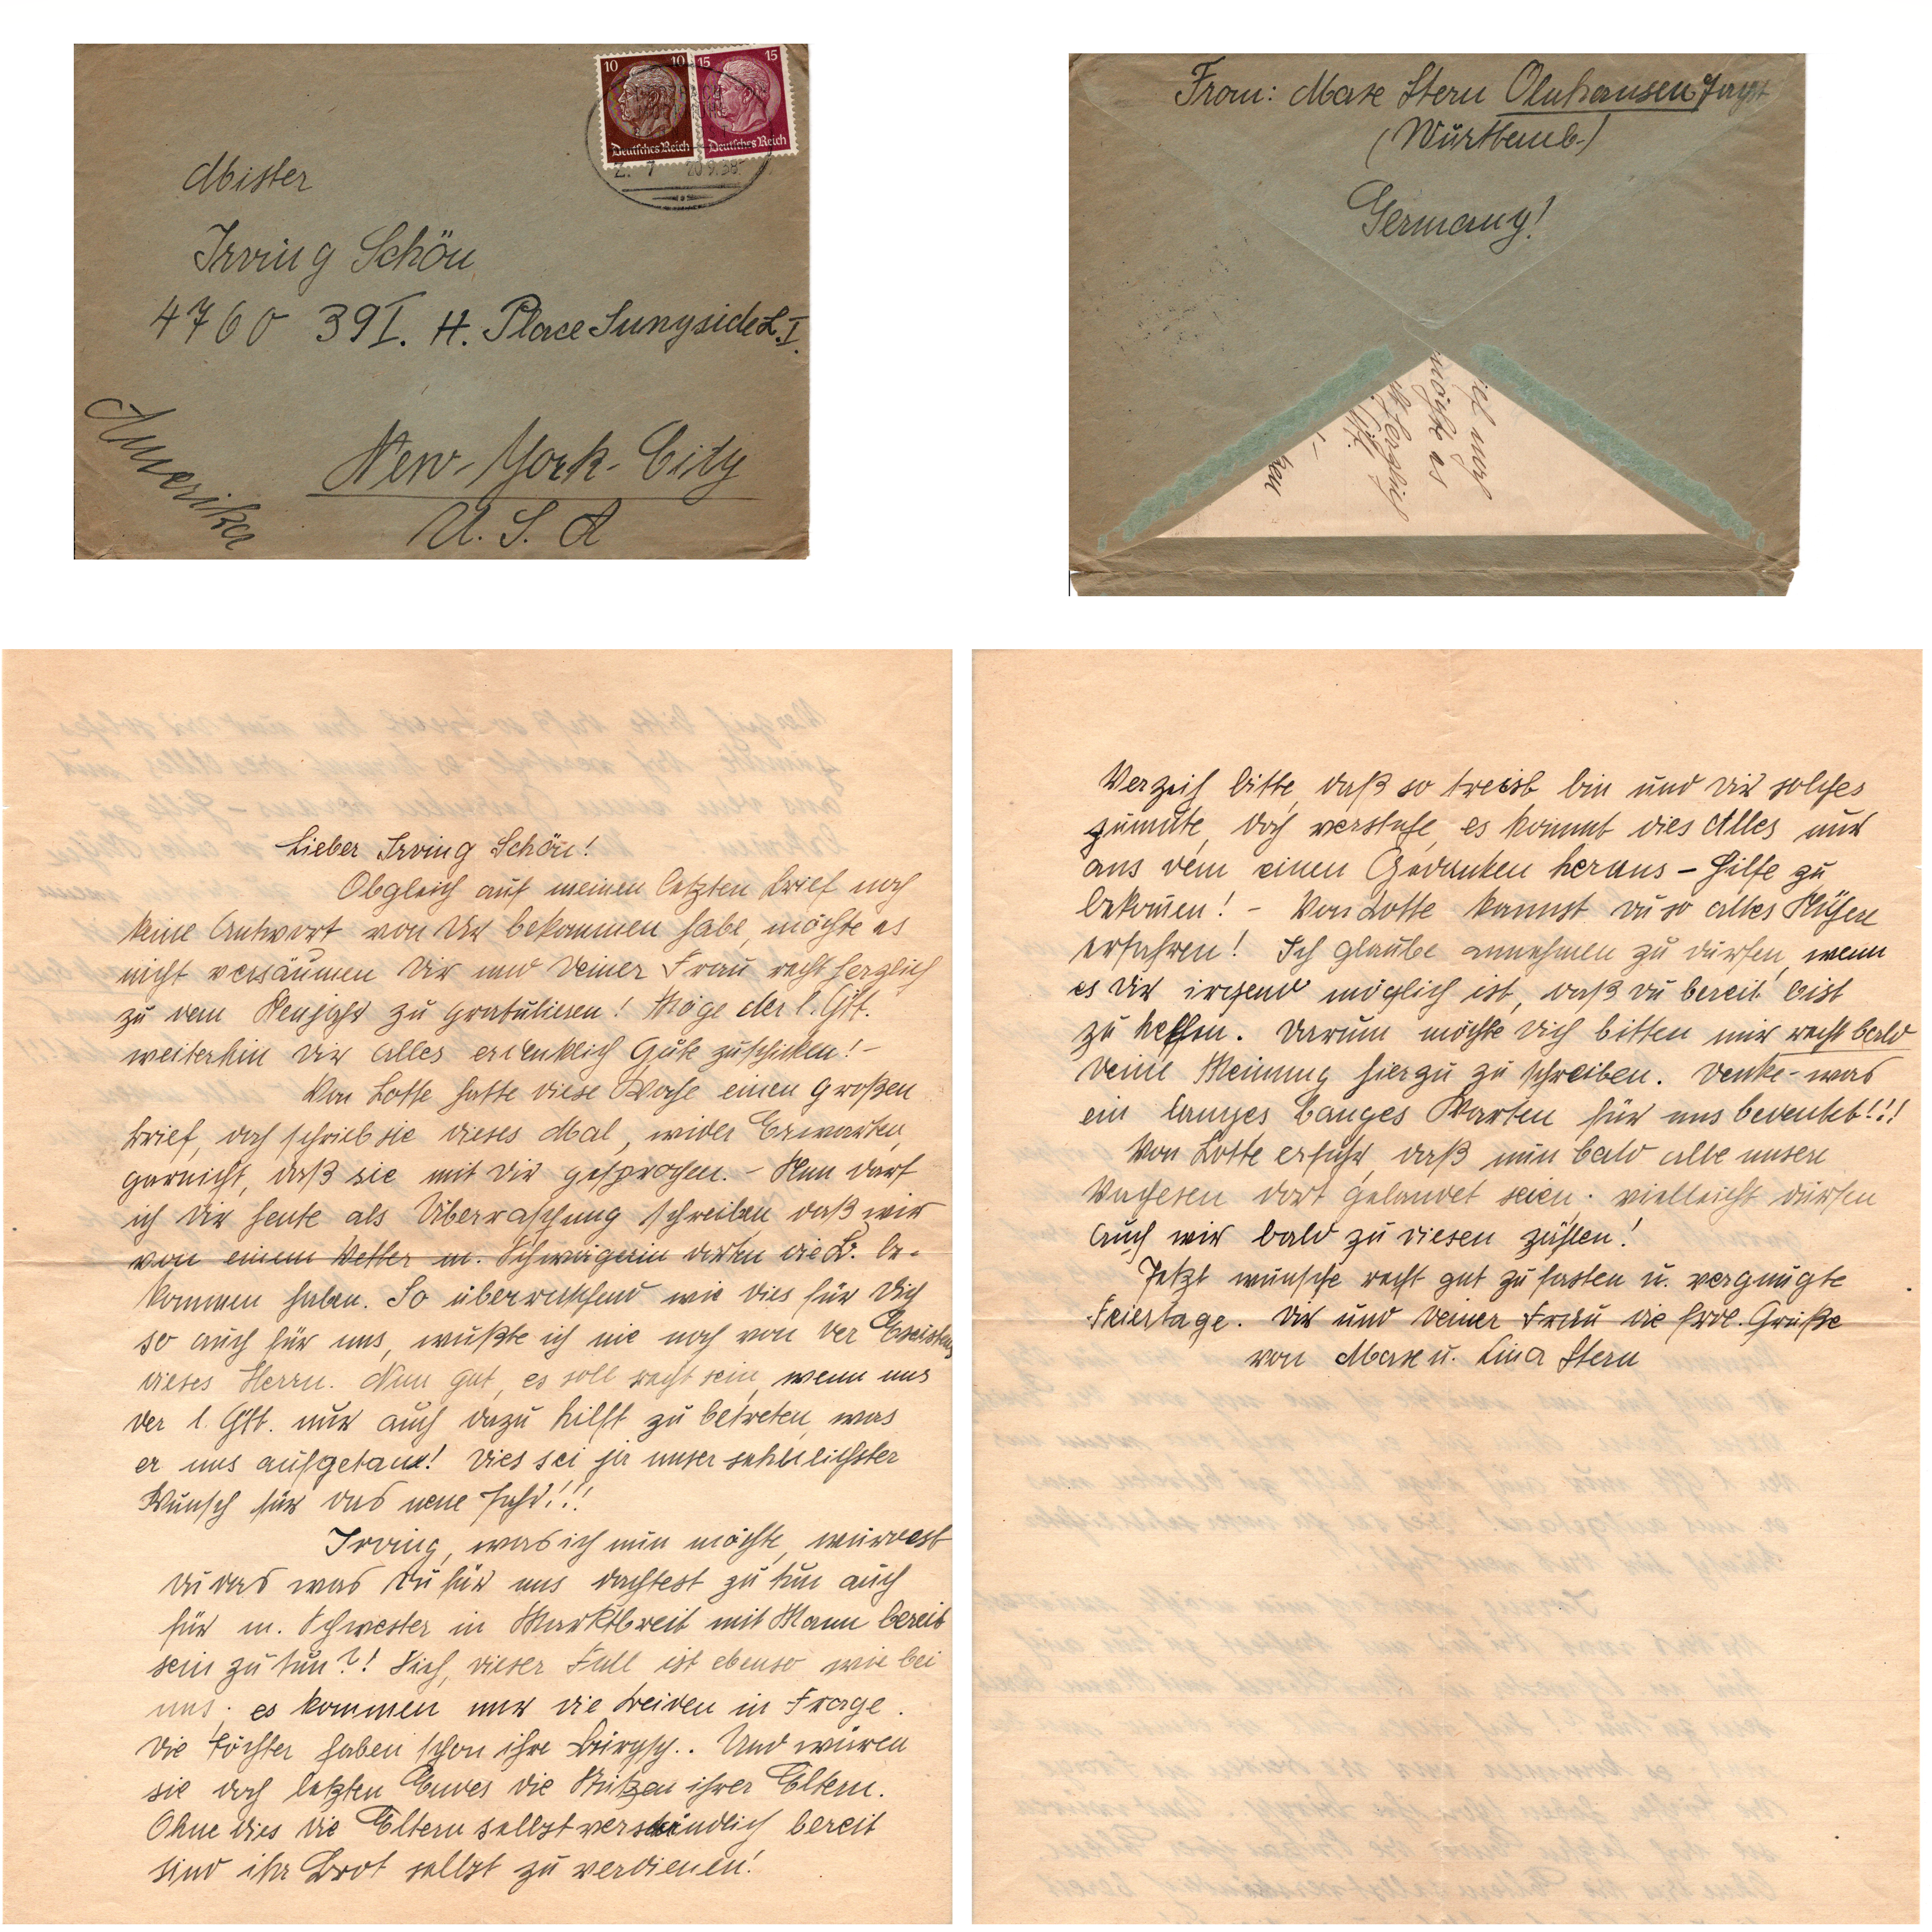 10 10
15 15
Deutsches Reich
Deutsches Reich
Z. 7 20.9.38
Mister
Irving Schön
4760 39I. H. Place Sunyside L.I.
Amerika
New-York-City
U.S.A
From: Max Stern Olnhausen Jagst
(Württemb.)
Germany!
möchte es
herzlich
Lieber Irving Schön!
Obgleich auf meinen letzten Brief noch
keine Antwort von Dir bekommen habe, möchte es
nicht versäumen Dir und Deiner Frau recht herzlich
zu dem Neujahr zu gratulieren! Möge der l. Gtt.
weiterhin Dir alles erdenklich Gute zuschicken! -
Von Lotte hatte diese Woche einen großen
Brief, doch schrieb sie dieses Mal, wider Erwarten,
garnicht, daß sie mit Dir gesprochen. - Nun darf
ich Dir heute als Überraschung schreiben daß wir
von einem Vetter m. Schwägerin dorten die B. be-
kommen haben. So überraschend wie dies für Dich
so auch für uns, wußte ich nie noch von der Existenz
dieses Herrn. Nun gut, es soll recht sein, wenn uns
der l. Gtt. nur auch dazu hilft zu betreten, was
er uns aufgetan! Dies sei ja unser sehnlichster
Wunsch für das neue Jahr!!!
Irving, was ich nun möchte, würdest
Du das was Du für uns dachtest zu tun auch
für m. Schwester in Marktbreit mit Mann bereit
sein zu tun?! Sieh, dieser Fall ist ebenso wie bei
uns, es kommen nur die Beiden in Frage.
Die Töchter haben schon ihre Bürgsch.. Und wären
sie doch letzten Endes die Stützen ihrer Eltern.
Ohne dies die Eltern selbstverständlich bereit
sind ihr Brot selbst zu verdienen!
Verzeih bitte, daß so treist bin und Dir solches
zumute, doch verstehe, es kommt dies Alles nur
aus dem einen Gedanken heraus - Hilfe zu
bekom̅en! - Von Lotte kannst Du so alles Nähere
erfahren! Ich glaube annehmen zu dürfen, wenn
es Dir irgend möglich ist, daß Du bereit bist
zu helfen. Darum möchte Dich bitten mir recht bald
Deine Meinung hierzu zu schreiben. Denke - was
ein langes banges Warten für uns bedeutet!!!
Von Lotte erfuhr, daß nun bald alle unsere
dort gelandet seien. vielleicht dürfen
auch wir bald zu diesen zählen!
Jetzt wünsche recht gut zu fasten u. vergnügte
Feiertage. Dir und Deiner Frau die frdl. Grüße
von Max u. Lina Stern